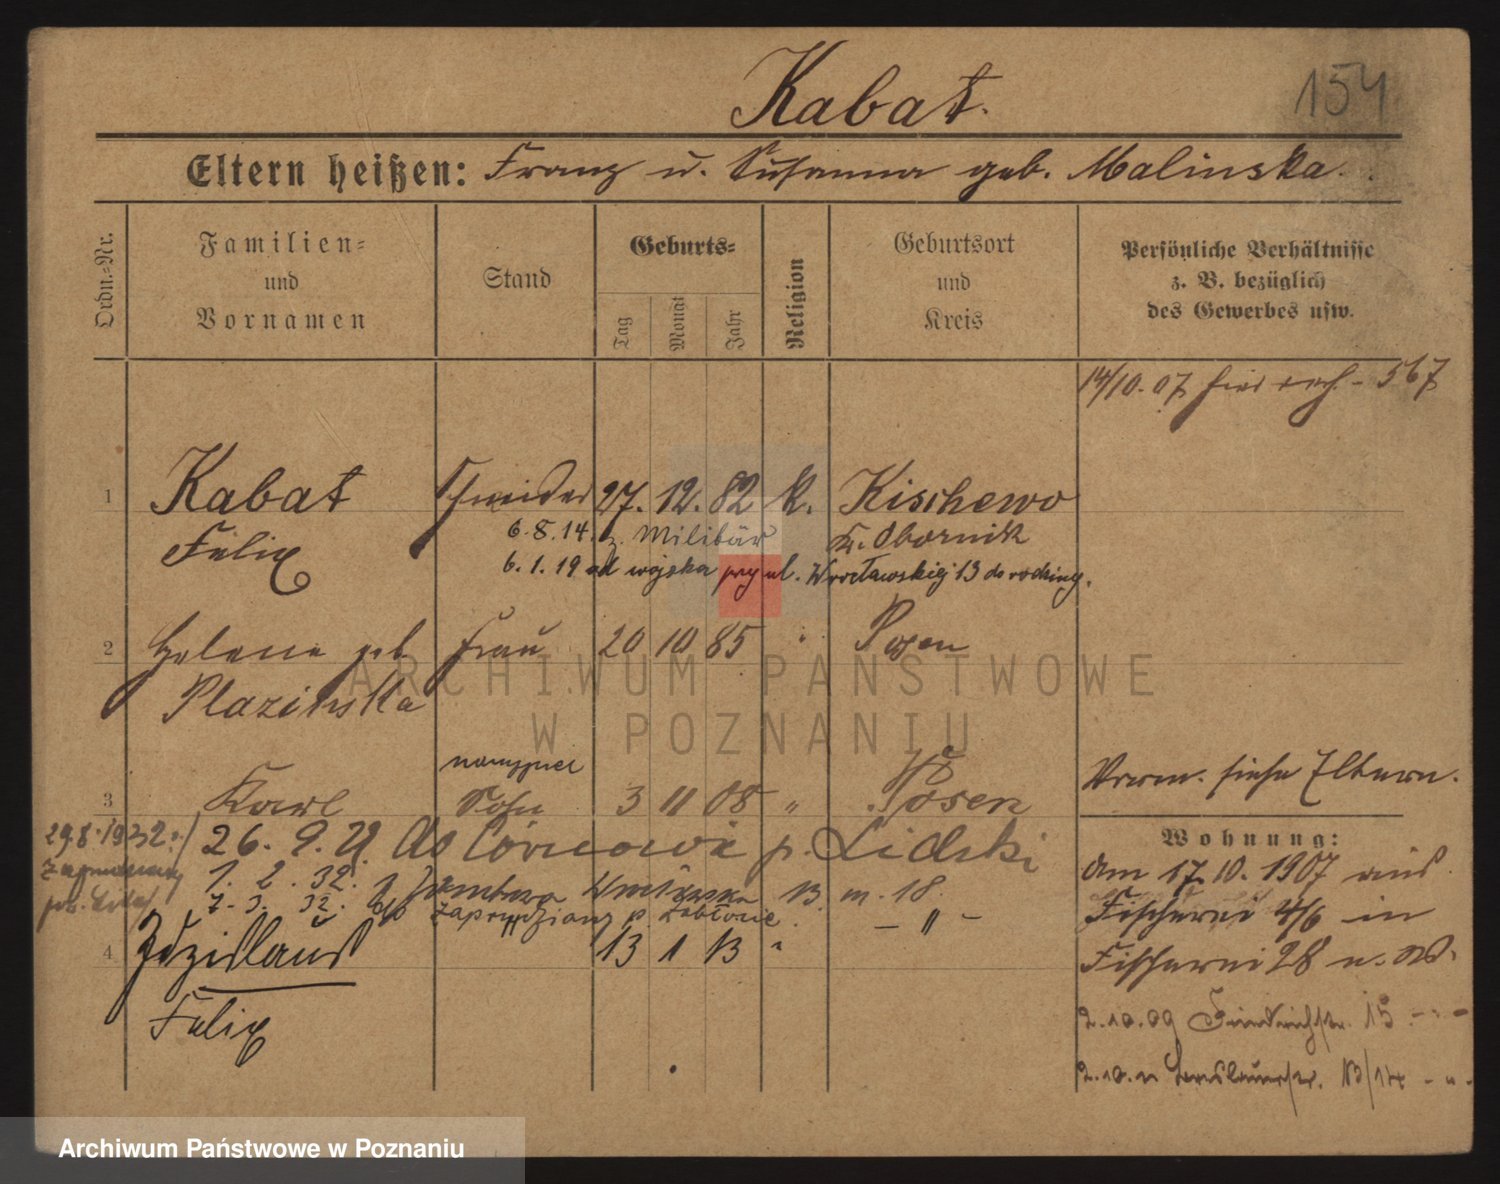 Kabat.
154
Eltern heißen: Franz u. Susanna geb. Malinska.
Ordn.=Nr.
Familien=
und
Vornamen
Stand
Geburts=
Tag
Monat
Jahr
Religion
Geburtsort
und
Kreis
Persönliche Verhältnisse
z. B. bezüglich
des Gewerbes usw.
14/10.07 567
1 Kabat Schneider 27. 12. 82 k. Kischewo
Felix
6.8.14. z. Militär
Kr. Obornik
6.1.19 od wojska przy ul. Wrocławskiej 13 do rodziny.
2 Helene geb. Frau 20 10 85 " Posen
Plazinska
3 Karl Sohn 3 11 08 " Posen
Verm. siehe Eltern.
29.8.1932.
26. 9. 21 do p. Lidzki
1. 2. 32. 13 m. 18.
7. 3. 32. p. — " —
4 Zdzislaus 13 1 13 "
Felix
Wohnung:
Am 17.10.1907 aus
Fischerei 4/6 in
Fischerei 28 u. W.
2.10.09 Friedrichstr. 15 - " -
2.10.11 Breslauerstr. 13/14 - " -
ARCHIWUM PAŃSTWOWE
W POZNANIU
Archiwum Państwowe w Poznaniu